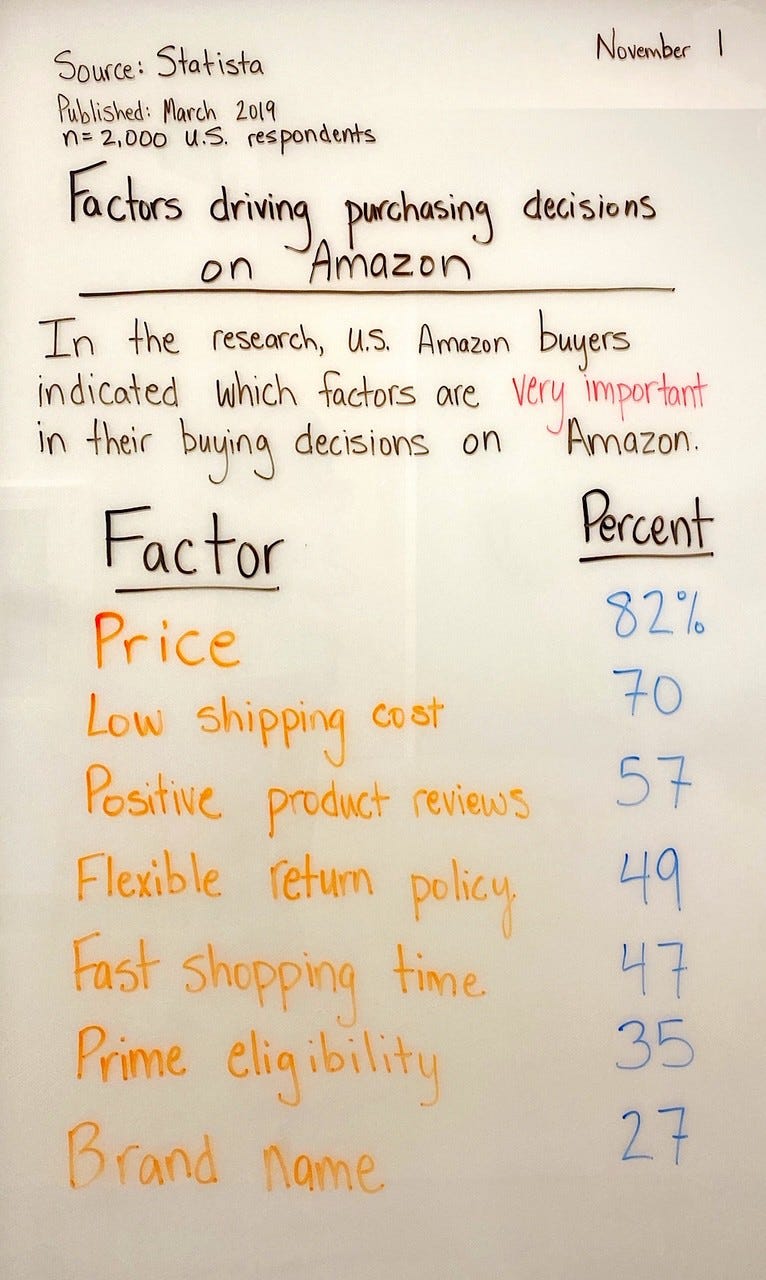 November 1
Source: Statista
Published: March 2019
n= 2,000 U.S. respondents
Factors driving purchasing decisions
on Amazon
In the research, U.S. Amazon buyers
indicated which factors are very important
in their buying decisions on Amazon.
Factor Percent
Price 82%
Low shipping cost 70
Positive product reviews 57
Flexible return policy 49
Fast shopping time 47
Prime eligibility 35
Brand name 27